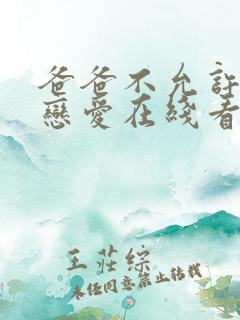 爸爸不允許
戀愛在綫看
王莊綜
未經同意禁止轉載